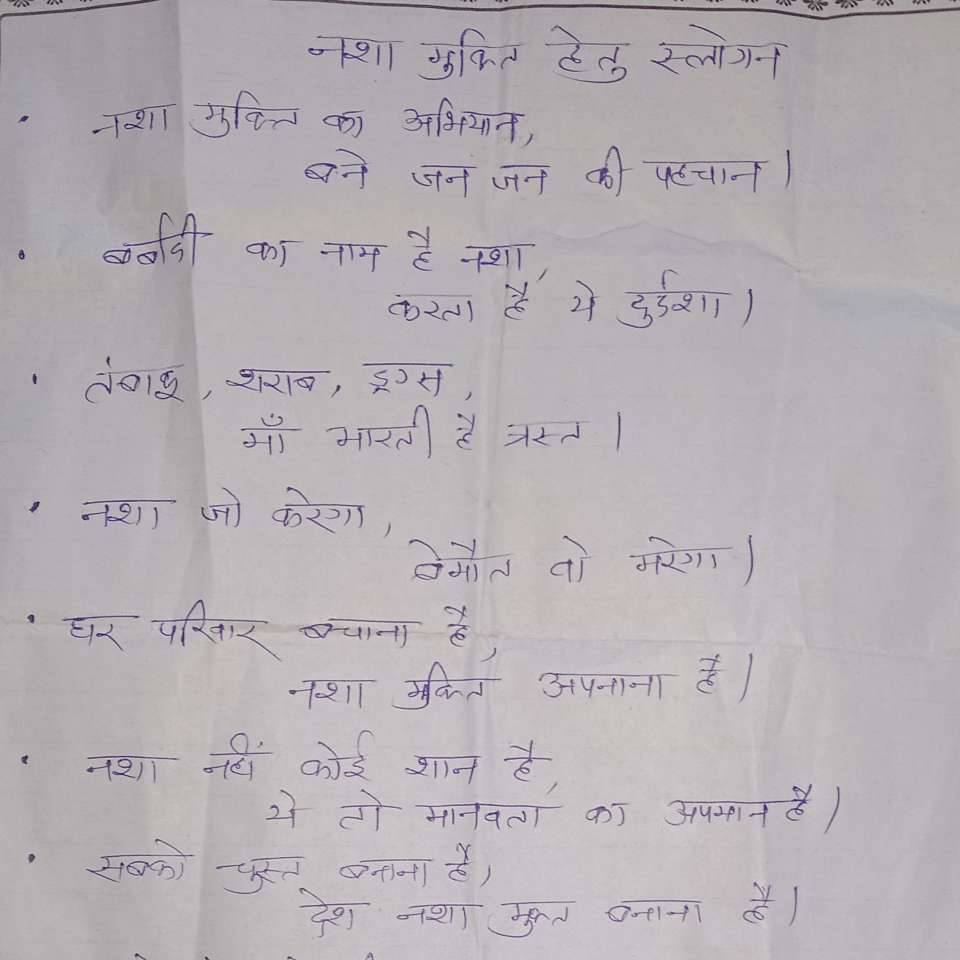 नशा मुक्ति हेतु स्लोगन
• नशा मुक्ति का अभियान,
बने जन जन की पहचान।
• बर्बादी का नाम है नशा,
करता है ये दुर्दशा।
• तंबाकू, शराब, ड्रग्स,
माँ भारती है त्रस्त।
• नशा जो करेगा,
बेमौत वो मरेगा।
• घर परिवार बचाना है,
नशा मुक्ति अपनाना है।
• नशा नहीं कोई शान है,
ये तो मानवता का अपमान है।
• सबको चुस्त बनाना है,
देश नशा मुक्त बनाना है।